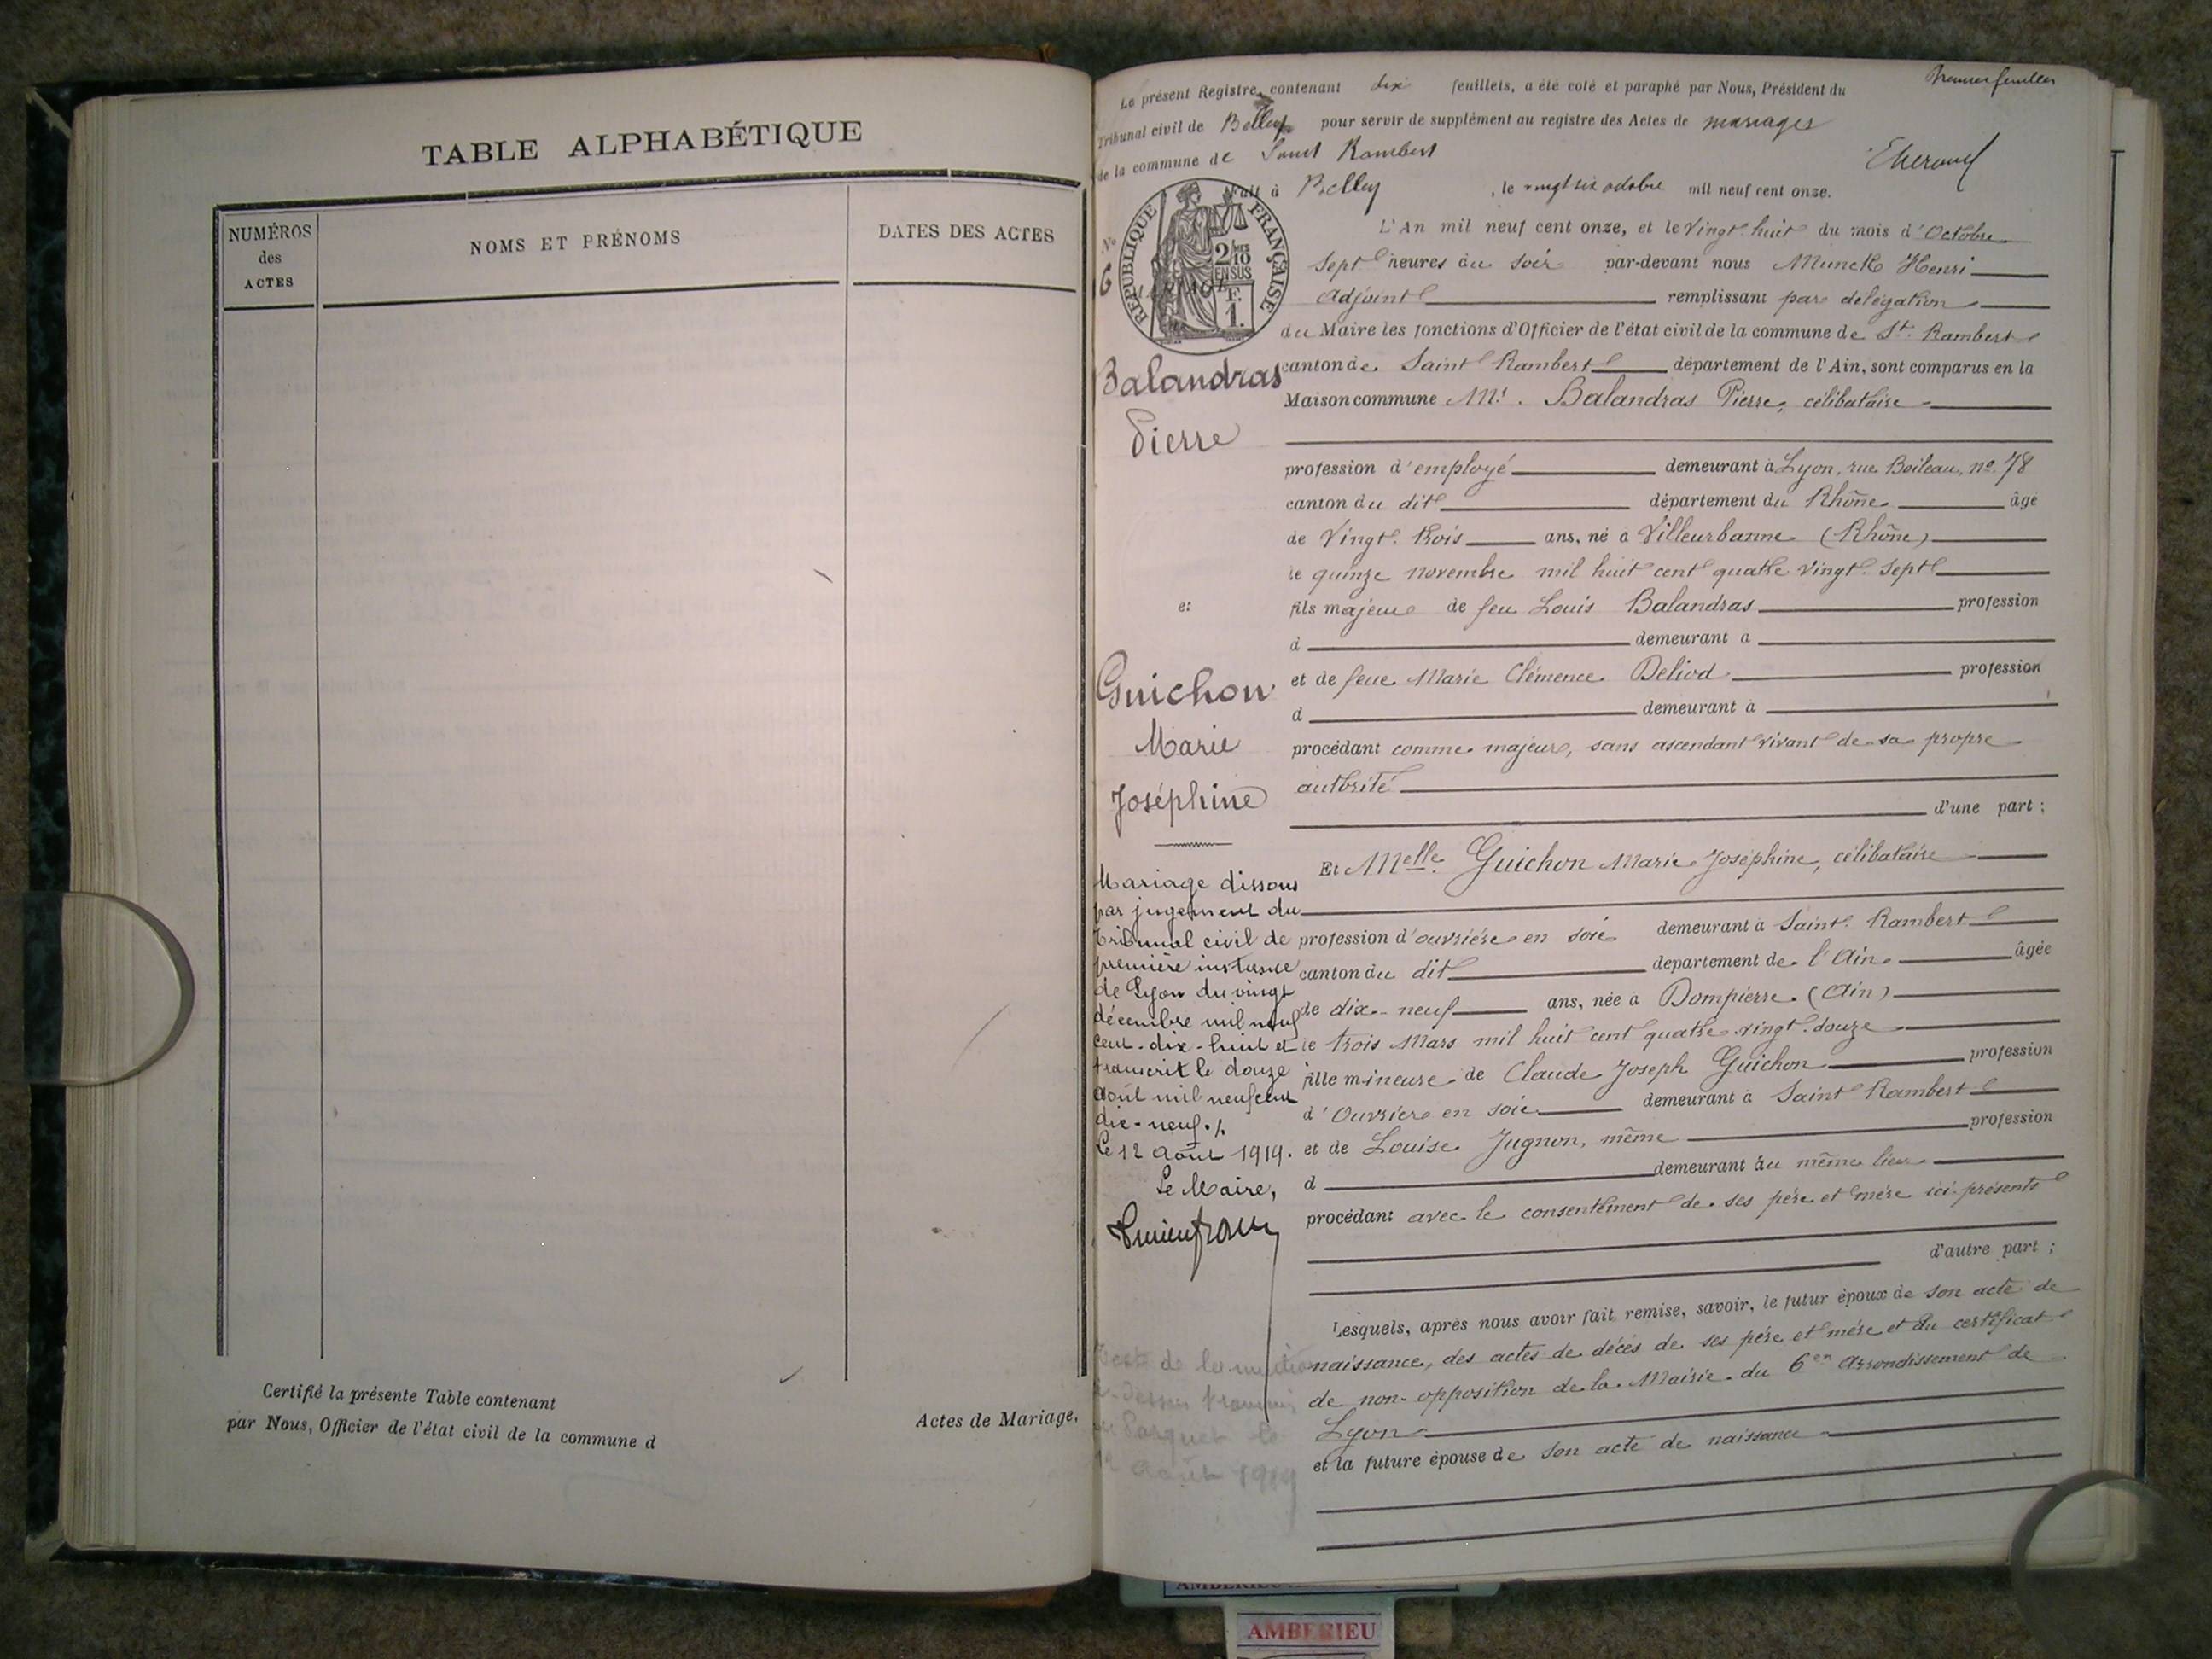 TABLE ALPHABÉTIQUE
NUMÉROS
des
ACTES
NOMS ET PRÉNOMS
DATES DES ACTES
Certifié la présente Table contenant
Actes de Mariage,
par Nous, Officier de l'état civil de la commune d
Premier feuillet
Le présent Registre, contenant dix feuillets, a été coté et paraphé par Nous, Président du
Tribunal civil de Belley pour servir de supplément au registre des Actes de mariages
de la commune de Saint Rambert
Fait à Belley, le vingt six octobre mil neuf cent onze.
No
6
MARIAGE
RÉPUBLIQUE FRANÇAISE
2/10
EN SUS
F.
1.
Balandras
Pierre
et
Guichon
Marie
Joséphine
Mariage dissous
par jugement du
Tribunal civil de
première instance
de Lyon du vingt
décembre mil neuf
cent-dix-huit et
transcrit le douze
août mil neuf cent
dix-neuf ./.
Le 12 août 1919.
Le Maire,
de la mention
ci-dessus transmis
au Parquet le
12 août 1919
L'An mil neuf cent onze, et le Vingt-huit du mois d'Octobre
sept heures du soir par-devant nous Munck Henri
Adjoint remplissant par délégation
du Maire les fonctions d'Officier de l'état civil de la commune de St. Rambert
canton de Saint Rambert département de l'Ain, sont comparus en la
Maison commune Mr. Balandras Pierre, célibataire
profession d'employé demeurant à Lyon, rue Boileau, no. 78
canton du dit département du Rhône âgé
de Vingt-trois ans, né à Villeurbanne (Rhône)
le quinze novembre mil huit cent quatre vingt-sept
fils majeur de feu Louis Balandras profession
d demeurant à
et de feue Marie Clémence Deliod profession
d demeurant à
procédant comme majeur, sans ascendant vivant de sa propre
autorité
d'une part ;
Et Melle Guichon Marie Joséphine, célibataire
profession d'ouvrière en soie demeurant à Saint-Rambert
canton du dit département de l'Ain âgée
de dix-neuf ans, née à Dompierre (Ain)
le trois Mars mil huit cent quatre-vingt-douze
fille mineure de Claude Joseph Guichon profession
d'Ouvrier en soie demeurant à Saint Rambert
et de Louise Jugnon, même profession
d demeurant au même lieu
procédant avec le consentement de ses père et mère ici présents
d'autre part ;
Lesquels, après nous avoir fait remise, savoir, le futur époux de son acte de
naissance, des actes de décès de ses père et mère et du certificat
de non-opposition de la Mairie du 6en Arrondissement de
Lyon
et la future épouse de son acte de naissance
AMBERIEU